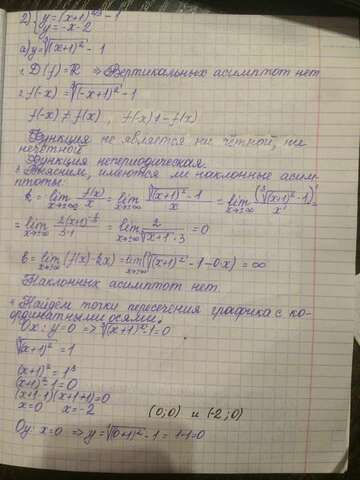 2) { y=(x+1)^{2/3}-1
y=-x-2
а) y=∛(x+1)² - 1
1. D(f)=ℝ ⇒ Вертикальных асимптот нет
2. f(-x) = ∛(-x+1)² -1
f(-x) ≠ f(x) , f(x) ≠ -f(x)
Функция не является ни чётной, ни
нечётной
Функция непериодическая.
3. Выясним, имеются ли наклонные асим-
птоты:
k = lim x→±∞ f(x)/x = lim x→±∞ (∛(x+1)² -1)/x = lim x→±∞ (∛(x+1)² -1)'/x' =
= lim x→±∞ 2(x+1)^{-1/3}/3·1 = lim x→±∞ 2/(∛x+1 · 3) = 0
b = lim x→±∞ (f(x)-kx) = lim x→±∞ (∛(x+1)² -1-0·x) = ∞
Наклонных асимптот нет.
4. Найдем точки пересечения графика с ко-
ординатными осями.
Ox: y=0 => ∛(x+1)² -1=0
∛(x+1)² = 1
(x+1)² = 1³
(x+1)² - 1=0
(x+1-1)(x+1+1)=0
x=0 x=-2 (0;0) и (-2;0)
Oy: x=0 => y=∛(0+1)² -1 = 1-1=0